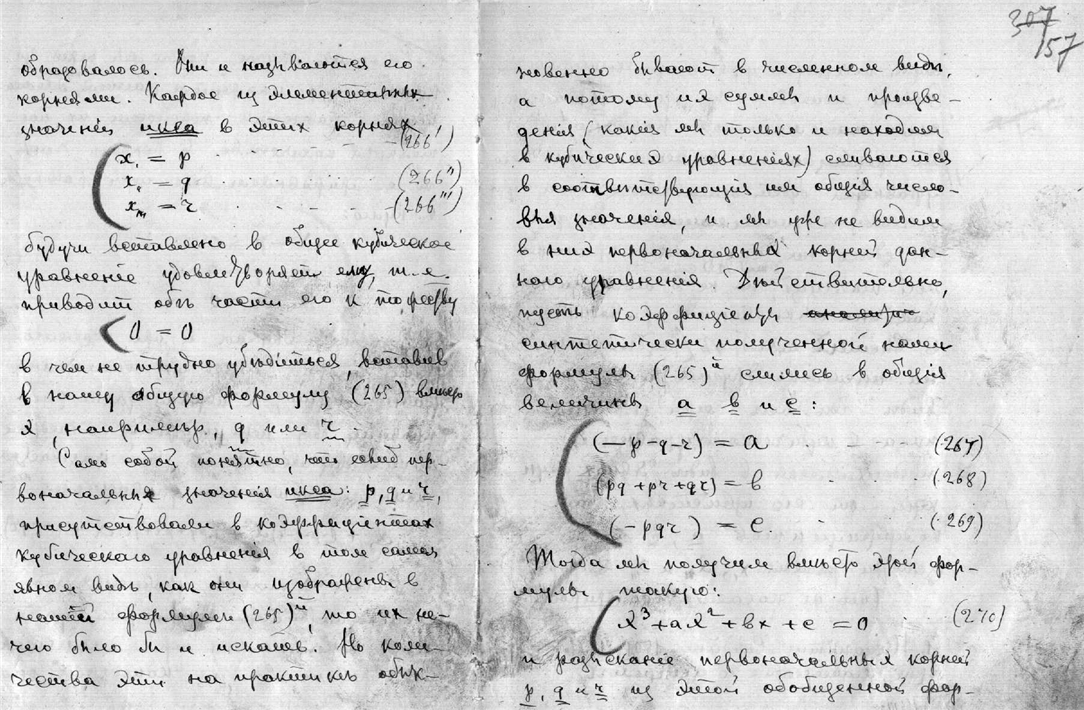 307
157
образовалось. Они и называются его
корнями. Каждое из элементарных
значенiй икса в этих корнях
x, = p - (266')
x,, = q (266'')
x,,, = r - (266''')
будучи вставлено в общее кубическое
уравненiе удовлетворяет ему, т.е.
приводит обѣ части его к тождеству
0 = 0
в чем не трудно убѣдиться, вставив
в нашу общую формулу (265) вмѣсто
x, напримѣр, q или r.
Само собой понятно, что если б пер-
воначальныя значенiя икса: p, q и r,
присутствовали в коэффицiентах
кубическаго уравненiя в том самом
явном видѣ, как они изображены в
нашей формулѣ (265)й, то их не-
чего было бы и искать. Но коли-
чества эти на практикѣ обык-
новенно бывают в численном видѣ,
а потому их суммы и произве-
денiя (какiя мы только и находим
в кубических уравненiях) сливаются
в соотвѣтствующiя им общiя число-
выя значенiя, и мы уже не видим
в них первоначальных корней дан-
ного уравненiя. Дѣйствительно,
пусть коэффицiенты
синтетически полученной нами
формулы (265)й слились в общiя
величины a в и c:
(-p-q-r) = a (267)
(pq+pr+qr) = в (268)
(-pqr) = c. (269)
Тогда мы получим вмѣсто этой фор-
мулы такую:
x³+ax²+вx+c=0 (270)
и разысканiе первоначальных корней
p, q и r из этой обобщенной фор-